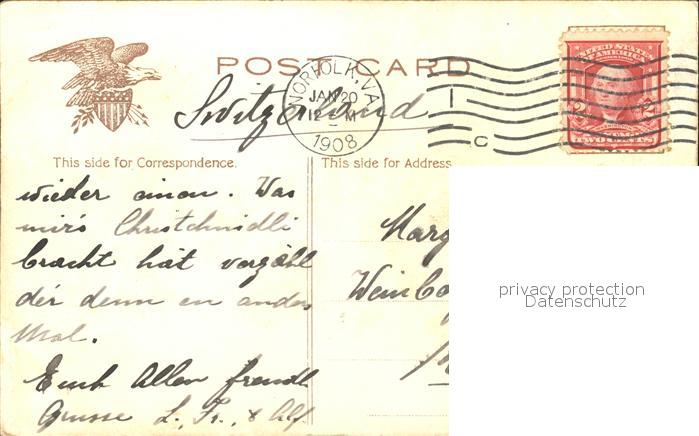 POST CARD
NORFOLK, VA.
JAN 20
12 M
1908
C
UNITED STATES
OF AMERICA
2 2
TWO CENTS
Switzerland
This side for Correspondence.
This side for Address
wieder einen. Was
mir's Christchindli
bracht hät verzähl
dir denn en anders
Mal.
Euch Allen freundl
Grüsse L., Fr., & Alf.
Marg
Weinb
privacy protection
Datenschutz